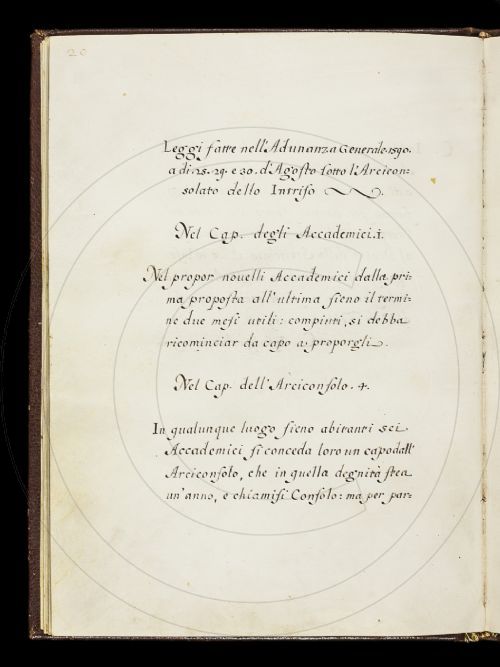 20
Leggi fatte nell'Adunanza Generale. 1590.
a dì. 28. 29. e 30. d'Agosto sotto l'Arcicon:
solato dello Intriso
Nel Cap. degli Accademici. 1.
Nel propor nouelli Accademici dalla pri:
ma proposta all'ultima sieno il termi:
ne due mesi utili: compiuti, si debba
ricominciar da capo a proporgli.
Nel Cap. dell'Arciconsolo. 4.
In qualunque luogo sieno abitanti sei
Accademici si conceda loro un capo dall'
Arciconsolo, che in quella degnità stea
un'anno, e chiamisi Consolo: ma per par: